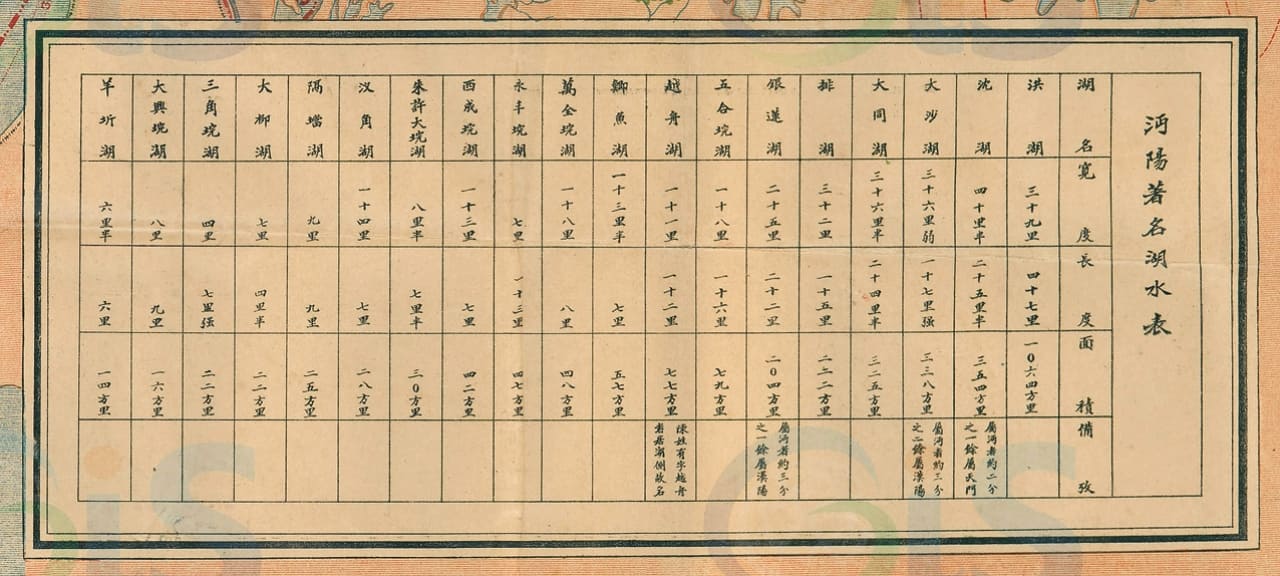 沔陽著名湖水表
湖名 寬度 長度 面積 備攷
洪湖 三十九里 四十七里 一〇六四方里
沈湖 四十里半 二十五里半 三五四方里 屬沔者約二分之一餘屬天門
大沙湖 三十六里弱 一十七里强 三三八方里 屬沔者約三分之二餘屬漢陽
大同湖 三十六里半 二十四里半 三二五方里
排湖 三十二里 一十五里 二二二方里
銀蓮湖 二十五里 二十二里 二〇四方里 屬沔者約三分之一餘屬漢陽
五合垸湖 一十八里 一十六里 七九方里
越舟湖 一十一里 一十二里 七七方里 陳姓有字越舟者居湖側故名
鯽魚湖 一十三里半 七里 五七方里
萬全垸湖 一十八里 八里 四八方里
永丰垸湖 七里 一十三里 四七方里
西成垸湖 一十三里 七里 四二方里
朱許大垸湖 八里半 七里半 三〇方里
汊角湖 一十四里 七里 二八方里
隔壋湖 九里 九里 二五方里
大柳湖 七里 四里半 二二方里
三角垸湖 四里 七里强 二二方里
大興垸湖 八里 九里 一六方里
羊圻湖 六里半 六里 一四方里
GIS